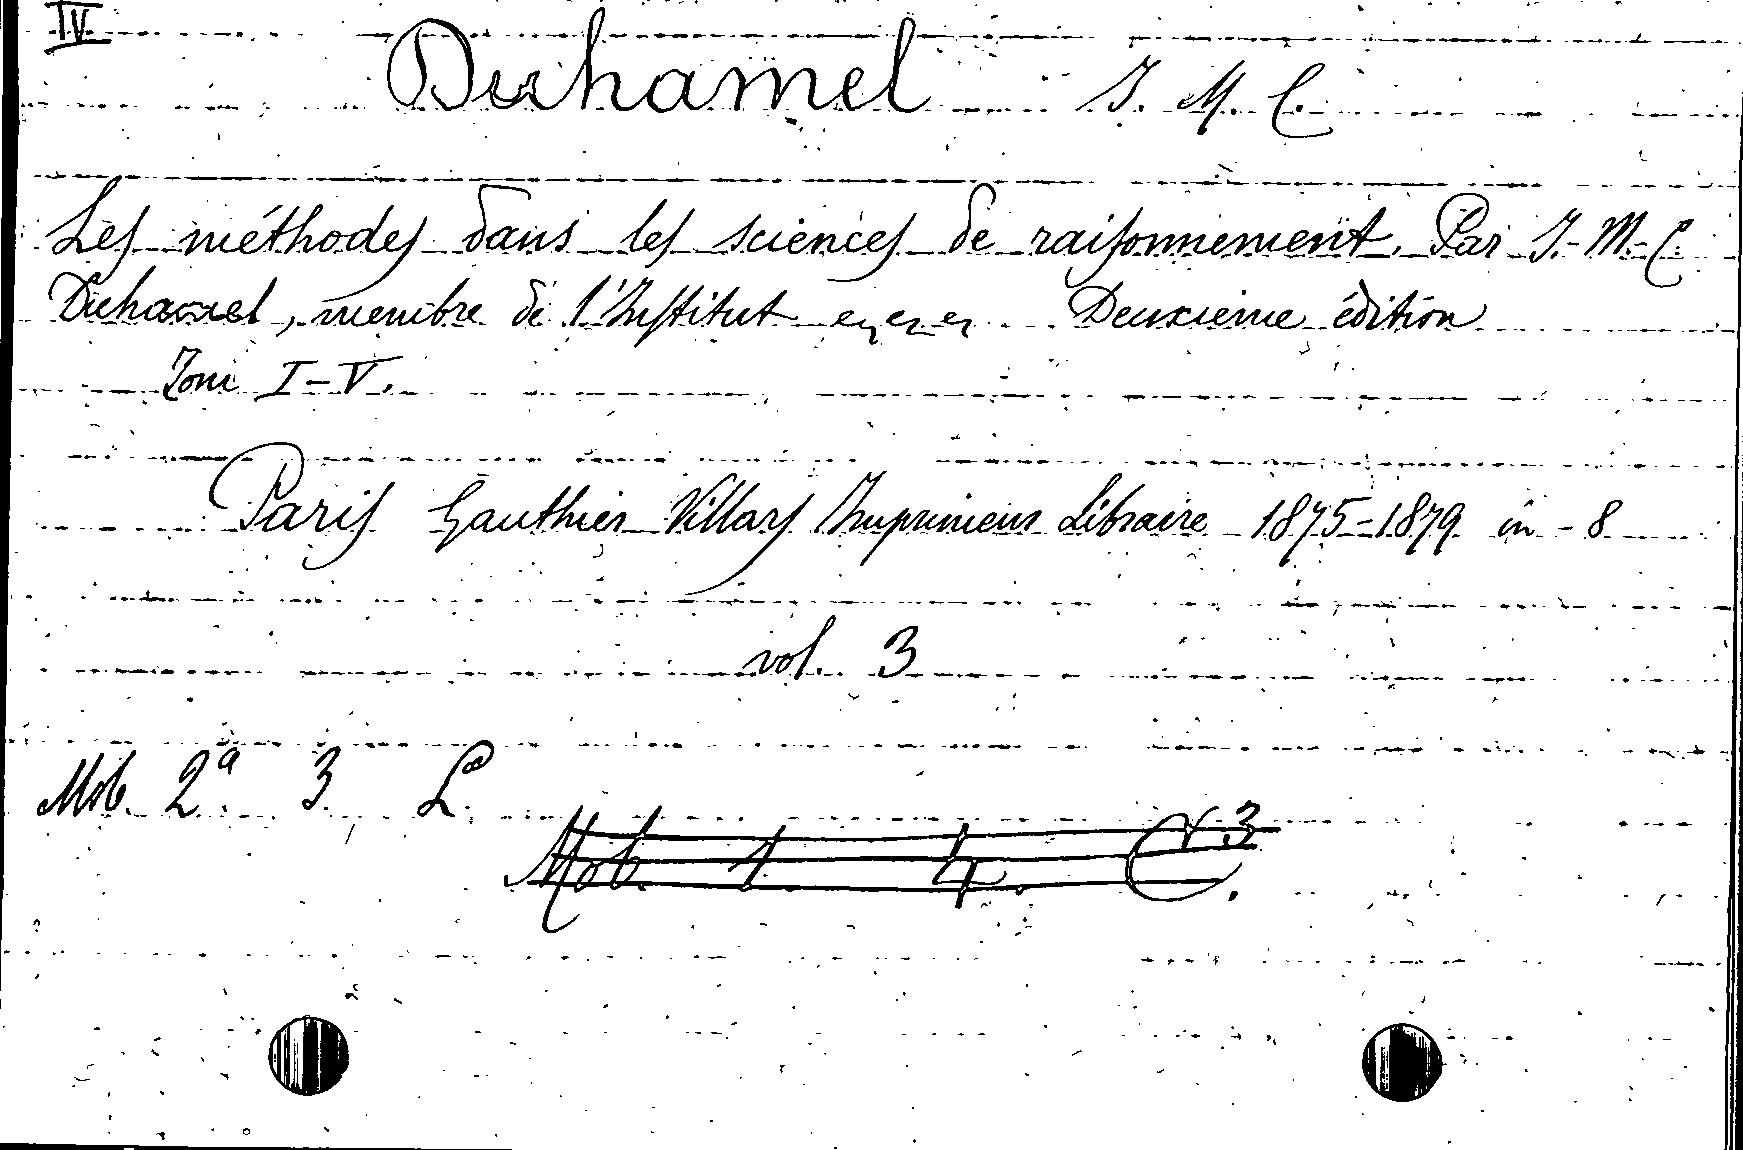 IV
Duhamel J. M. C.
Les méthodes dans les sciences de raisonnement. Par J.-M.-C.
Duhamel, membre de l'Institut ec, ec, ec, Deuxième édition
Tom I-V.
Paris Gauthier Villars Imprimeur Libraire 1875-1879 in-8
vol. 3
Mob. 2a. 3. L
Mob. 1. 4. C